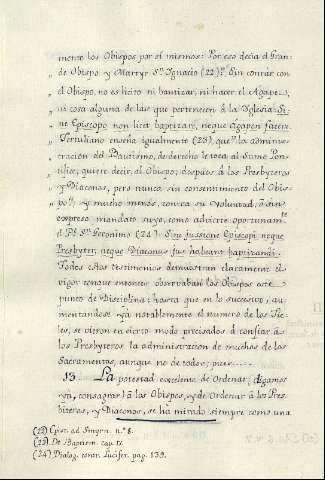 mente los Obispos por sí mismos: Por eso decia el Gran-
de Obispo y Martyr Sn. Ignacio (22) Sin contar con
el Obispo, no es licito ni bautizar, ni hacer el Agape,
ni cosa alguna de las que pertenecen á la Iglesia: Si-
ne Episcopo non licet baptizare, neque Agapen facere.
Tertuliano enseña igualmente (23), que la adminis-
tracion del Bautismo, de derecho le toca al Sumo Pon-
tifice, quiere decir, al Obispo; despues á los Presbyteros
y Diaconos, pero nunca sin consentimiento del Obis-
po, y mucho menos, contra su voluntad, ó sin
expreso mandato suyo, como advierte oportunamte.
el P. Sn. Geronimo (24) Sine jussione Episcopi neque
Presbyter, neque Diaconus jus habeant baptizandi.
Todos estos testimonios demuestran claramente el
vigor conque entonces observaban los Obispos este
punto de Disciplina: hasta que en lo sucesivo, au-
mentandose ya notablemente el numero de los Fie-
les, se vieron en cierto modo precisados á confiar á
los Presbyteros la administracion de muchos de los
Sacramentos, aunque no de todos; pues
13. La potestad excelente de Ordenar; (digamos
ya, consagrar) á los Obispos, y de Ordenar á los Pres-
biteros, y Diaconos, se ha mirado siempre como una
(22) Epist. ad Smyrn. n.º 8.
(23) De Baptism. cap. 17.
(24) Dialog. contr. Lucifer. pag. 139.